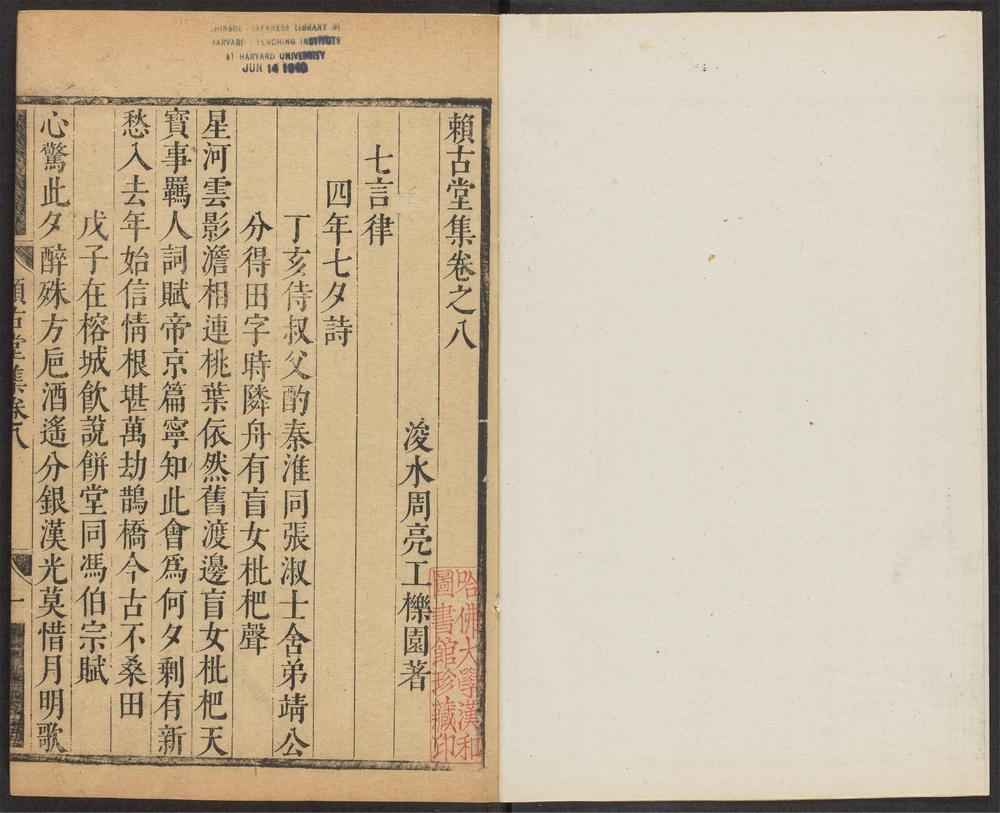 CHINESE - JAPANESE LIBRARY OF
HARVARD - YENCHING INSTITUTE
AT HARVARD UNIVERSITY
JUN 14 1940
賴古堂集卷之八
浚水周亮工櫟園著
七言律
四年七夕詩
丁亥侍叔父酌秦淮同張淑士舍弟靖公
分得田字時隣舟有盲女枇杷聲
星河雲影澹相連桃葉依然舊渡邊盲女枇杷天
寳事羈人詞賦帝京篇寧知此會爲何夕剩有新
愁入去年始信情根堪萬劫鵲橋今古不桑田
戊子在榕城飲說餅堂同馮伯宗賦
心驚此夕醉殊方巵酒遙分銀漢光莫惜月明歌
賴古堂集卷八
一
哈佛大學漢和
圖書館珍藏印